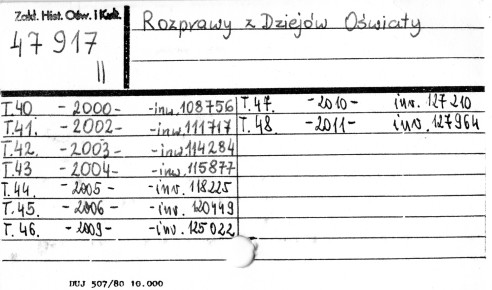 Zakł. Hist. Ośw. i Kult.
47 917
II
Rozprawy z Dziejów Oświaty
T.40 - 2000 - -inw. 108756
T.41. - 2002 - -inw. 111717
T.42. - 2003 - -inw. 114284
T.43 - 2004 - -inw. 115877
T.44. - 2005 - -inv. 118225
T.45. - 2006 - -inv. 120449
T.46. - 2009 - -inv. 125022
T.47. - 2010 - inv. 127210
T.48. - 2011 - inv. 127964
DUJ 507/80 10.000